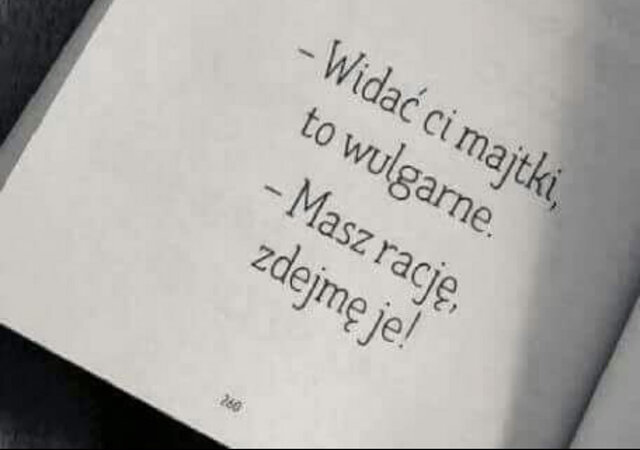 – Widać ci majtki,
to wulgarne.
– Masz rację,
zdejmę je!
260